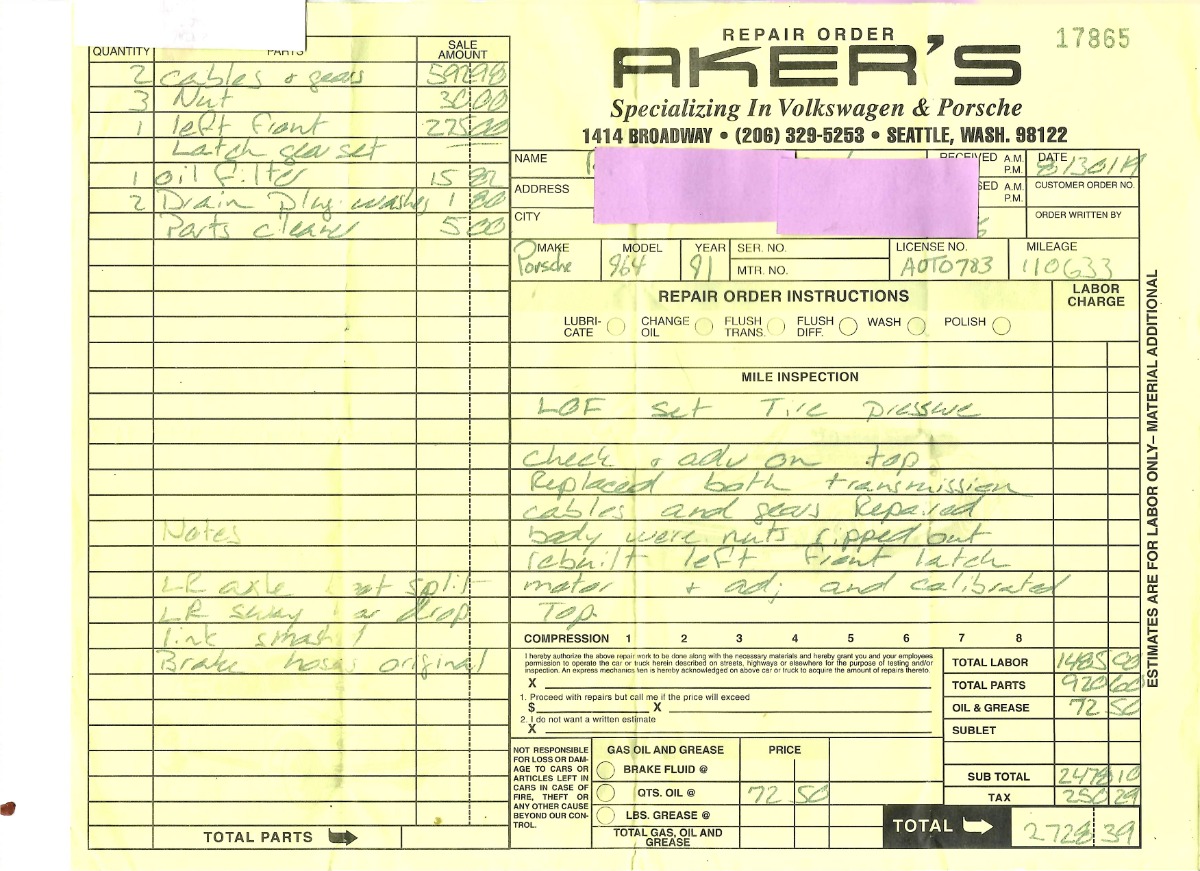 REPAIR ORDER
17865
AKER'S
Specializing In Volkswagen & Porsche
1414 BROADWAY • (206) 329-5253 • SEATTLE, WASH. 98122
QUANTITY PARTS SALE AMOUNT
2 cables & gears 592 98
3 Nut 30 00
1 left front 275 00
Latch gear set
1 oil filter 15 82
2 Drain plug washes 1 80
Parts cleaner 5 00
Notes
LR axle split
LR sway drop
link smash
Brake hoses original
TOTAL PARTS
NAME
RECEIVED A.M. P.M.
DATE
ADDRESS
A.M. P.M.
CUSTOMER ORDER NO.
CITY
ORDER WRITTEN BY
MAKE Porsche
MODEL 964
YEAR 91
SER. NO.
MTR. NO.
LICENSE NO. A0T0783
MILEAGE 110633
REPAIR ORDER INSTRUCTIONS
LABOR CHARGE
LUBRI-CATE CHANGE OIL FLUSH TRANS. FLUSH DIFF. WASH POLISH
MILE INSPECTION
LOF set Tire pressure
check & adv on top
Replaced both transmission
cables and gears Repaired
body were nuts ripped out
rebuilt left front latch
motor + adj and calibrated
Top.
COMPRESSION 1 2 3 4 5 6 7 8
I hereby authorize the above repair work to be done along with the necessary materials and hereby grant you and your employees
permission to operate the car or truck herein described on streets, highways or elsewhere for the purpose of testing and/or
inspection. An express mechanics lien is hereby acknowledged on above car or truck to acquire the amount of repairs thereto.
X
1. Proceed with repairs but call me if the price will exceed
$ X
2. I do not want a written estimate
X
TOTAL LABOR 1485 00
TOTAL PARTS 920 60
OIL & GREASE 72 50
SUBLET
SUB TOTAL 2478 10
TAX 250 29
TOTAL 2728 39
NOT RESPONSIBLE
FOR LOSS OR DAM-
AGE TO CARS OR
ARTICLES LEFT IN
CARS IN CASE OF
FIRE, THEFT OR
ANY OTHER CAUSE
BEYOND OUR CON-
TROL.
GAS OIL AND GREASE PRICE
BRAKE FLUID @
QTS. OIL @ 72 50
LBS. GREASE @
TOTAL GAS, OIL AND GREASE
ESTIMATES ARE FOR LABOR ONLY– MATERIAL ADDITIONAL